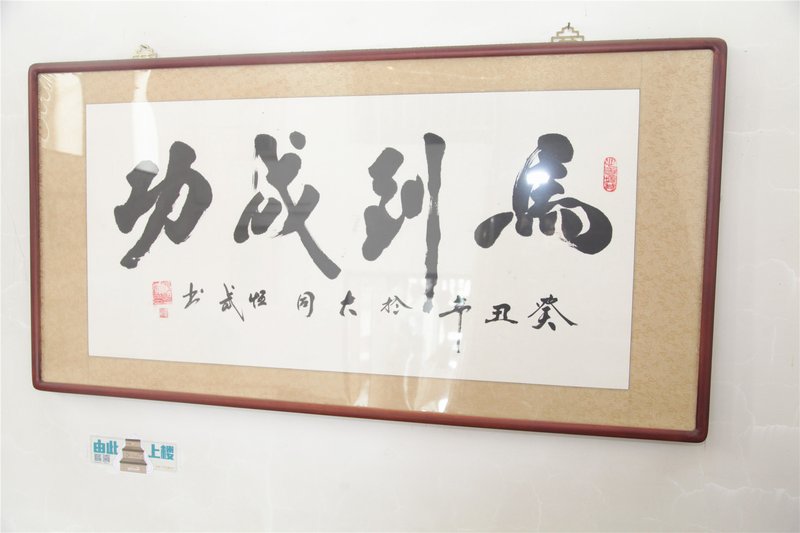 馬到成功
癸丑年於大同恒武书
由此上楼